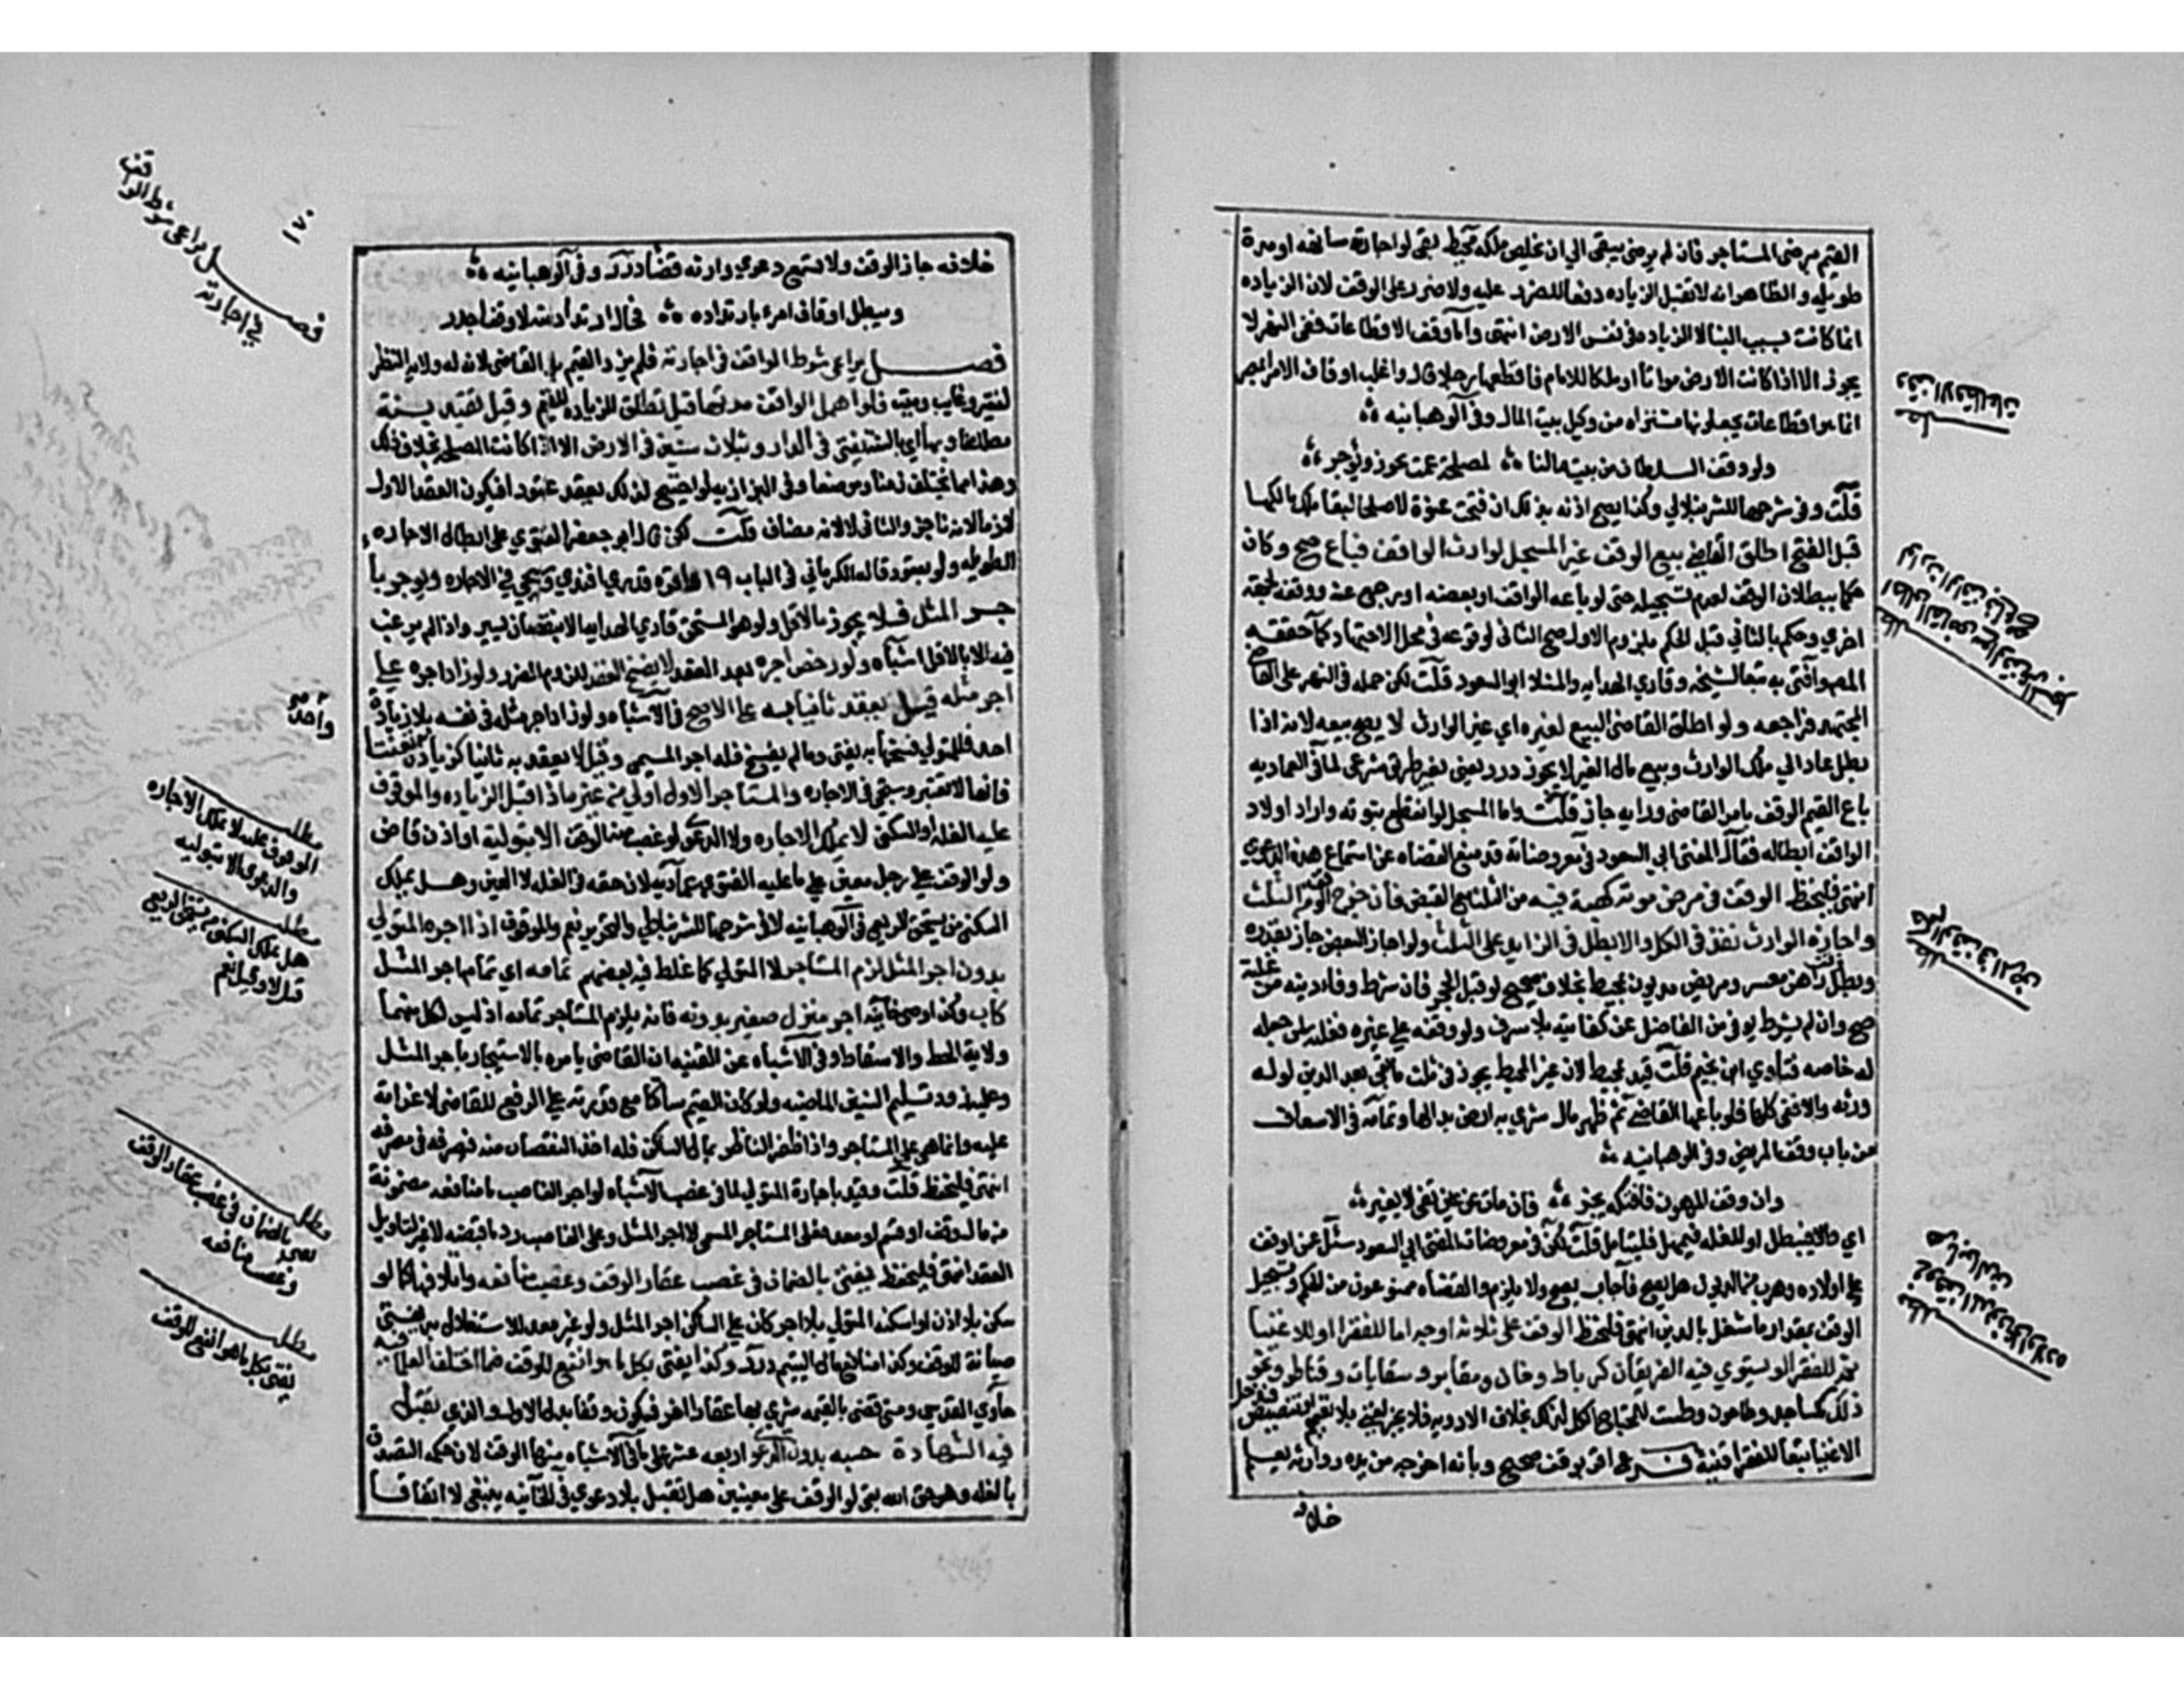 القيم مرضى المستاجر فان لم يرضى يبقى الى ان يخلص ملكه محيط بقى لو اجارته سانهه او مدة
طويله والظاهر انه لا تقبل الزياده دفعا للضرر عليه ولا ضرر على الوقف لان الزياده
انما كانت بسبب البنا لا الزياده في نفس الارض انتهى واما وقف الاقطاعات ففي النهر لا
يجوز الا اذا كانت الارض مواتا او ملكا للامام فاقطعها رجلا قال واغلب اوقاف الامرا بمصر
انما هو اقطاعات يجعلونها مشتراه من وكيل بيت المال وفي الوهبانيه
ولو وقف السلطان من بيت مالنا لمصلحة عمت يجوز ويوجر
قلت وفي شرحها للشرنبلالي وكذا يصح اذنه بذلك ان فتحت عنوة لا صلحا لبقا ملك مالكها
قبل الفتح اطلق القاضي بيع الوقف غير المسجل لوارث الواقف فباع صح وكان
حكما ببطلان الوقف لعدم تسجيله حتى لو باعه الواقف او بعضه او رجع عنه ووقفه لجهة
اخري وحكم بالثاني قبل الحكم بلزوم الاول صح الثاني لوقوعه في محل الاجتهاد كما حققه
المص وافتى به تبعا لشيخه وقاري الهدايه والمنلا ابو السعود قلت لكن حمله في النهر على القاضي
المجتهد فراجعه ولو اطلق القاضي البيع لغيره اي غير الوارث لا يصح بيعه لانه اذا
بطل عاد الي ملك الوارث وبيع مال الغير لا يجوز درر يعني بغير طريق شرعي لما في العماديه
باع القيم الوقف بامر القاضي ورايه جاز قلت واما المسجل لو انقطع ثبوته واراد اولاد
الواقف ابطاله فقال المفتي ابي السعود في معروضاته قد منع القضاه عن استماع هذه الدعوي
انتهى فليحفظ الوقف في مرض موته كهبة فيه من الثلث مع القبض فان خرج الوقف من الثلث
و اجازه الوارث نفذ في الكل والا بطل في الزايد على الثلث ولو اجاز البعض جاز بقدره
وبطل وقف راهن معسر ومريض مديون بمحيط بخلاف صحيح لو قبل الحجر فان شرط وفا دينه من غلته
صح وان لم يشرط يوفى من الفاضل عن كفايته بلا سرف ولو وقفه على غيره فغلته لمن جعله
له خاصه فتاوي ابن نجيم قلت قيد بمحيط لان غير المحيط يجوز في ثلث ما بقي بعد الدين لو له
ورثه والا ففي كلها فلو باعها القاضي ثم ظهر مال شري به ارض بدلها وتمامه في الاسعاف
من باب وقف المريض وفي الوهبانيه
وان وقف المرهون فافتكه يجز فان مات عن عين تفي لا يغير
اي والا فيبطل او للغله فيمهل فليتامل قلت لكن في معروضات المفتي ابي السعود سئل عن اوقف
على اولاده وهرب من الديون هل يصح فاجاب لا يصح ولا يلزم والقضاه ممنوعون من الحكم وتسجيل
الوقف بمقدار ما شغل بالدين انتهى فليحفظ الوقف على ثلاثه اوجه اما للفقرا او للاغنيا
ثم للفقرا او يستوي فيه الفريقان كرباط وخان ومقابر وسقايات وقناطر ونحو
ذلك كمساجد وطاحون وطست لاحتياج الكل لذلك بخلاف الادويه فلا يجز لغني بلا تعميم او تنصيص فيدخل
الاغنيا تبعا للفقرا قنيه فرع اقر بوقف صحيح وبانه اخرجه من يده ووارثه يعلم
خلافه
وقف الاقطاعات
خلافه جاز الوقف ولا تسمع دعوي وارثه قضا درر وفي الوهبانيه
ويبطل اوقاف امرء بارتداده فحال ارتداد منه لا وقف اجدر
فصل يراعى شرط الواقف في اجارته فلم يزد القيم بل القاضي لان له ولاية النظر
لفقير وغايب وميت فلو اهمل الواقف مدتها قيل تطلق للزياده للقيم وقيل تقيد بسنة
مطلقا وبها اي بالسنة يفتى في الدار وبثلاث سنين في الارض الا اذا كانت المصلحه بخلاف ذلك
وهذا مما يختلف زمنا وموضعا وفي البزازيه لو احتيج لذلك يعقد عقود افيكون العقد الاول
لازما لانه ناجز والثاني لا لانه مضاف قلت لكن قال ابو جعفر الفتوي على ابطال الاجاره
الطويله ولو بعقود قاله الكرماني في الباب ١٩ واقره قدري افندي وسيجي في الاجاره ويوجر با
جر المثل فلا يجوز بالاقل ولو هو المستحق قاري الهدايه الا بنقصان يسير واذا لم يرغب
فيه الا بالاقل اشباه ولو رخص اجره بعد العقد لا يفسخ العقد للزوم الضرر ولو زاد اجره على
اجر مثله قيل يعقد ثانيا به على الاصح في الاشباه ولو زاد اجر مثله في نفسه بلا زيادة
احد فللمتولي فسخها به يفتى وما لم يفسخ فله اجر المسمى وقيل لا يعقد به ثانيا كزيادة تعنتا
فانها لا تعتبر وسيجي في الاجاره والمستاجر الاول اولى من غيره اذا قبل الزياده والموقوف
عليه الغله او السكنى لا يملك الاجاره ولا الدعوى لو غصب منه الوقف الا بتوليه او اذن قاض
ولو الوقف على رجل معين على ما عليه الفتوي عماديه لان حقه في الغله لا العين وهل يملك
السكنى من يستحق الريع في الوهبانيه لا وفي شرحها للشرنبلالي والتحرير نعم والموقوف اذا اجره المتولي
بدون اجر المثل لزم المستاجر لا المتولي كما غلط فيه بعضهم تمامه اي تمام اجر المثل
كاب وكذا وصى خانيه اجر منزل صغيره بدونه فانه يلزم المستاجر تمامه اذ ليس لكل منهما
ولاية الحط والاسقاط وفي الاشباه عن القنيه ان القاضي يامره بالاستيجار باجر المثل
وعليه رد تسليم السنين الماضيه ولو كان القيم ساكتا مع قدرته على الرفع للقاضي لا غرامة
عليه وانما هي على المستاجر واذا ظفر الناظر بمال الساكن فله اخذ النقصان منه فيصرفه في مصرفه
انتهى فليحفظ قلت وقيد باجارة المتولي لما في غصب الاشباه لو اجر الغاصب ما منافعه مضمونة
من مال وقف او يتيم او معد فعلى المستاجر المسمى لا اجر المثل وعلى الغاصب رد ما قبضه لا غير لتاويل
العقد انتهى فليحفظ يفتى بالضمان في غصب عقار الوقف وغصب منافعه واتلافها كما لو
سكن بلا اذن او اسكنه المتولي بلا اجر كان على الساكن اجر المثل ولو غير معد للاستغلال به يفتى
صيانة للوقف وكذا منافع مال اليتيم درر وكذا يفتى بكل ما هو انفع للوقف فيما اختلف العلما فيه
حاوي القدسي ومتى قضى بالقيمه شري بها عقارا اخر فيكون وقفا بدل الاول والذي تقبل
فيه الشهادة حسبه بدون الدعوى اربعه عشر على ما في الاشباه منها الوقف لان حكمه التصدق
بالغله وهو حق الله بقى لو الوقف على معينين هل تقبل بلا دعوي في الخانيه ينبغي لا اتفاقا
١٧٠
فصل يراعى شرط الواقف
في اجارته
مطلب
الموقوف عليه لا يملك الاجاره
والدعوى الا بتوليه
مطلب
هل يملك السكنى من يستحق الريع
قيل لا وقيل نعم
مطلب
بالضمان في غصب عقار الوقف
وغصب منافعه
مطلب
يفتى بكل ما هو انفع للوقف